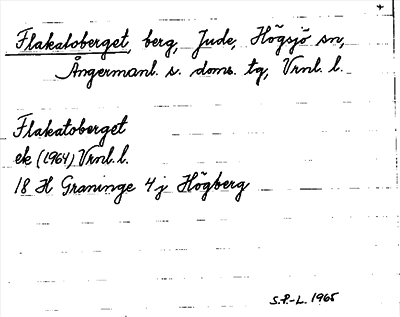 Flakatoberget, berg, Jude, Högsjö sn,
Ångermanl. s. doms. tg, Vrnl. l.
Flakatoberget
ek (1964) Vrnl. l.
18 H Graninge 4 j Högberg
S.P.-L. 1965